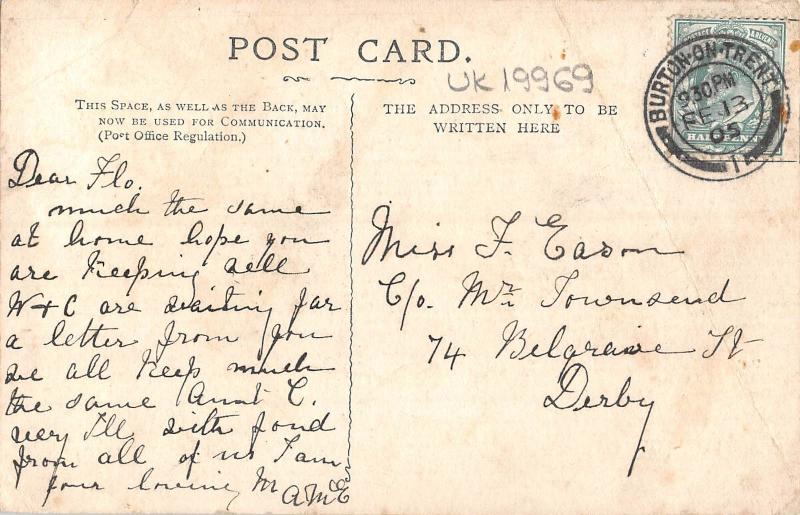 POST CARD.
UK19969
THIS SPACE, AS WELL AS THE BACK, MAY
NOW BE USED FOR COMMUNICATION.
(Post Office Regulation.)
THE ADDRESS ONLY TO BE
WRITTEN HERE
BURTON-ON-TRENT
9.30PM
DE 13
05
HALFPENNY
Dear Flo.
much the same
at home hope you
are keeping well
W & C are waiting for
a letter from you
we all keep much
the same Aunt C.
very Ill with fond
from all of us I am
your loving M
Miss F. Eason
C/o. Mrs Townsend
74 Belgrave St
Derby